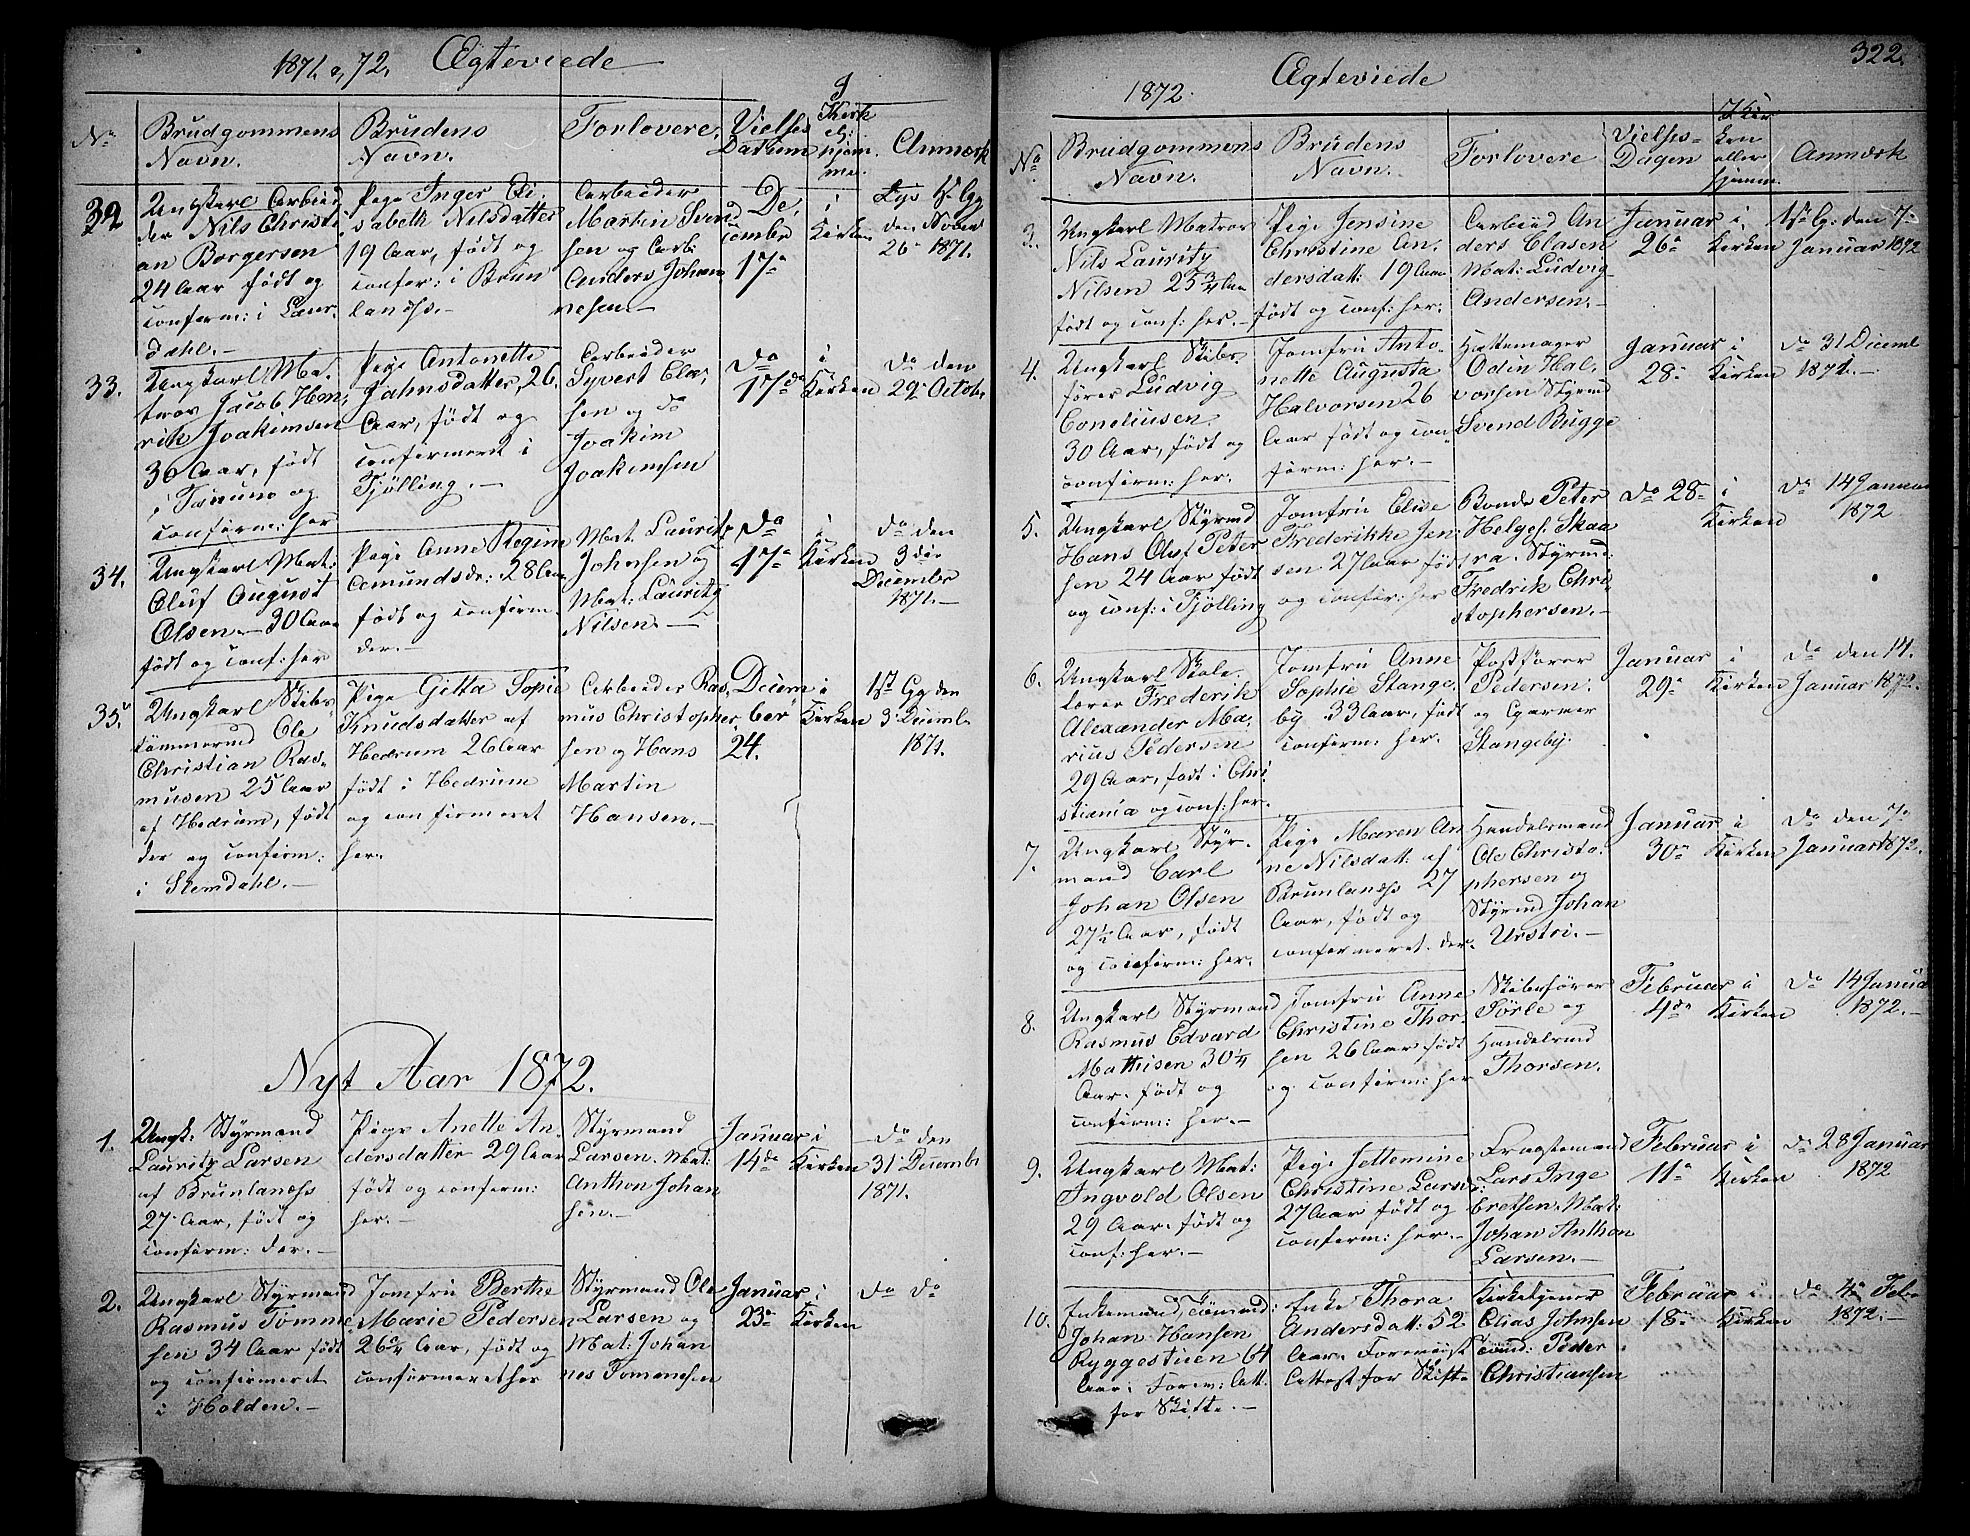 1871 & 72. Ægteviede
No
Brudgommens
Navn.
Brudens
Navn.
Forlovere.
Vielses
Dathum
I
Kirk
el:
hjem
me.
Anmærk
32
Ungkarl Arbeid
der Nils Christi
an Borgersen
24 Aar født og
confirm: i Laur
dahl.-
Pige Inger Eli
sabeth Nilsdatter
19 Aar, født og
confir: i Brun
lanæss.-
Arbeider
Martin Svend
sen og Arb:
Anders Johan
nesen.-
De,
cembr
17de
i
Kirken
Lys 1st Gg
den Novem
26 1871.
33.
Ungkarl Ma,
tros Jacob Hen,
rik Joakimsen
30 Aar, født
i Tanum og
confirm: her
Pige Antonette
Jahnsdatter, 26
Aar, født og
confirmeret i
Tjølling.-
Arbeider
Syvert Cla,
sen og do
Joakim
Joakimsen
Do
17de
i
Kirken
Do den
29 Octob.
34.
Ungkarl Mat:
Oluf August
Olsen.- 30 Aar
født og conf: her
Pige Anne Regine
Amundsdr: 28 Aar
født og confirm.
der.-
Mat. Lauritz
Johnsen og
Mat: Lauritz
Nilsen.-
Do
17de
i
Kirken
Do den
3die
December
1871.-
35.
Ungkarl Skibs
tømmermd Ole
Christian Ras-
musen 25 Aar
af Hedrum, født
der og confirm:
i Slemdahl.-
Pige Gitta Sopie
Knudsdatter af
Hedrum 26 Aar
født i Hedrum
og confirmeret
her.
Arbeider Ras,
mus Christopher
sen og Hans
Martin
Hansen.-
Decem
ber
24.
i
Kirken
1st Gg den
3 Decemb.
1871.
Nyt Aar 1872.
1.
Ungk: Styrmand
Lauritz Larsen
af Brunlanæss
27 Aar, født og
confirm: der.-
Pige Anette An-
dersdatter 29 Aar
født og confirm:
her.-
Styrmand
Larsen. Mat:
Anthon Johan
sen.-
Januar
14de
i
Kirken
Do den
31 Decemb
1871.
2.
Ungkarl Styrmand
Rasmus Tomme
sen 34 Aar født
og confirmeret
i Holden.-
Jomfru Berthe
Marie Pedersen
26 Aar, født og
confirmeret her
Styrmand Ole
Larsen og
Mat: Johan
nes Tommesen
Januar
23de
i
Kirken
Do Do
1872. Ægteviede 322.
No
Brudgommens
Navn.
Brudens
Navn.
Forlovere
Vielses-
Dagen
I Kir
ken
eller
hjemm.
Anmærk
3.
Ungkarl Matros
Nils Lauritz
Nilsen 23 3/4 Aar
født og conf: her.-
Pige Jensine
Christine An,
dersdatt: 19 Aar
født og conf: her.
Arbeid An
ders Clasen
Mat: Ludvig
Andersen.-
Januar
26
i
Kirken
1st G: den 7
Januar 1872
4.
Ungkarl Skibs
fører Ludvig
Corneliusen
30 Aar, født og
confirm: her.
Jomfru Anto-
nette Augusta
Halvorsen 26
Aar født og con-
firm: her.-
Hattemager
Odin Hal,
vorsen Styrmd
Svend Bugge
Januar
28
i
Kirken
Do 31 Decemb
1871.-
5.
Ungkarl Styrmd
Hans Olaf Peter
sen 24 Aar født
og conf: i Tjølling
Jomfru Elise
Frederikke Jen
sen 27 Aar født
og confir: her
Bonde Peter
Helges. Skaa
ra. Styrmd:
Fredrik Chri
stophersen.-
Do 28
i
Kirken
Do 14 Januar
1872
6.
Ungkarl Skole
lærer Frederik
Alexander Ma,
rius Pedersen
29 Aar, født i Chri
stiania og conf: her.
Jomfru Anne
Sophie Stange,
by 33 Aar, født
confirm: her.
Postfører
Pedersen
og Garver
Stangeby.
Januar
29
i
Kirken
Do den 14.
Januar 1872.
7.
Ungkarl Styr-
mand Carl
Johan Olsen
27 1/2 Aar, født
og confirm: her.
Pige Maren An
ne Nilsdatt: af
Brunlanæss 27
Aar, født og
confirmeret der.
Handelsmand
Ole Christo,
phersen og
Styrmd Johan
Ursin.-
Januar
30
i
Kirken
Do den 7
Januar 1872.
8.
Ungkarl Styrmand
Rasmus Edvard
Mathisen 30 1/4
Aar. født og
confirm: her.-
Jomfru Anne
Christine Thor-
sen 26 Aar født
og confirm: her
Skibsfører
Sørle og
Handelsmd
Thorsen.
Februar
4de
i
Kirken
Do 14 Januar
1872.-
9.
Ungkarl Mat:
Ingvold Olsen
29 Aar. født og
conf: her.-
Pige Jettemine
Christine Larsd:
27 Aar født og
confirm: her.-
Dragtemand
Lars Inge
bretsen. Mat:
Johan Anthon
Larsen.-
Februar
11
i
Kirken
Do 28 Januar
1872
10.
Enkemand, Tømmd:
Johan Hansen
Ryggestuen 64
Aar. Forev: Att.
for Skifte.-
Enke Thora
Andersdatt: 52.
Aar. Foreviist
Attest for Skifte
Kirketjener
Elias Johnsen
Tømd: Peder
Christiansen
Februar
18
i
Kirken
Do 4 Febr
1872.-